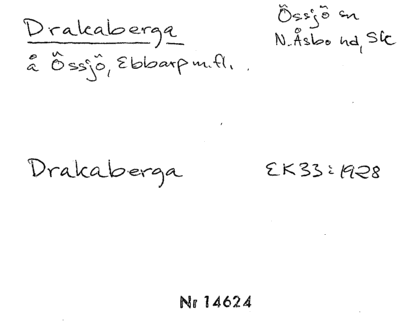 Drakaberga
Össjö sn
N. Åsbo hd, Sk
å Össjö, Ebbarp m.fl.
Drakaberga
EK33:1928
Nr 14624